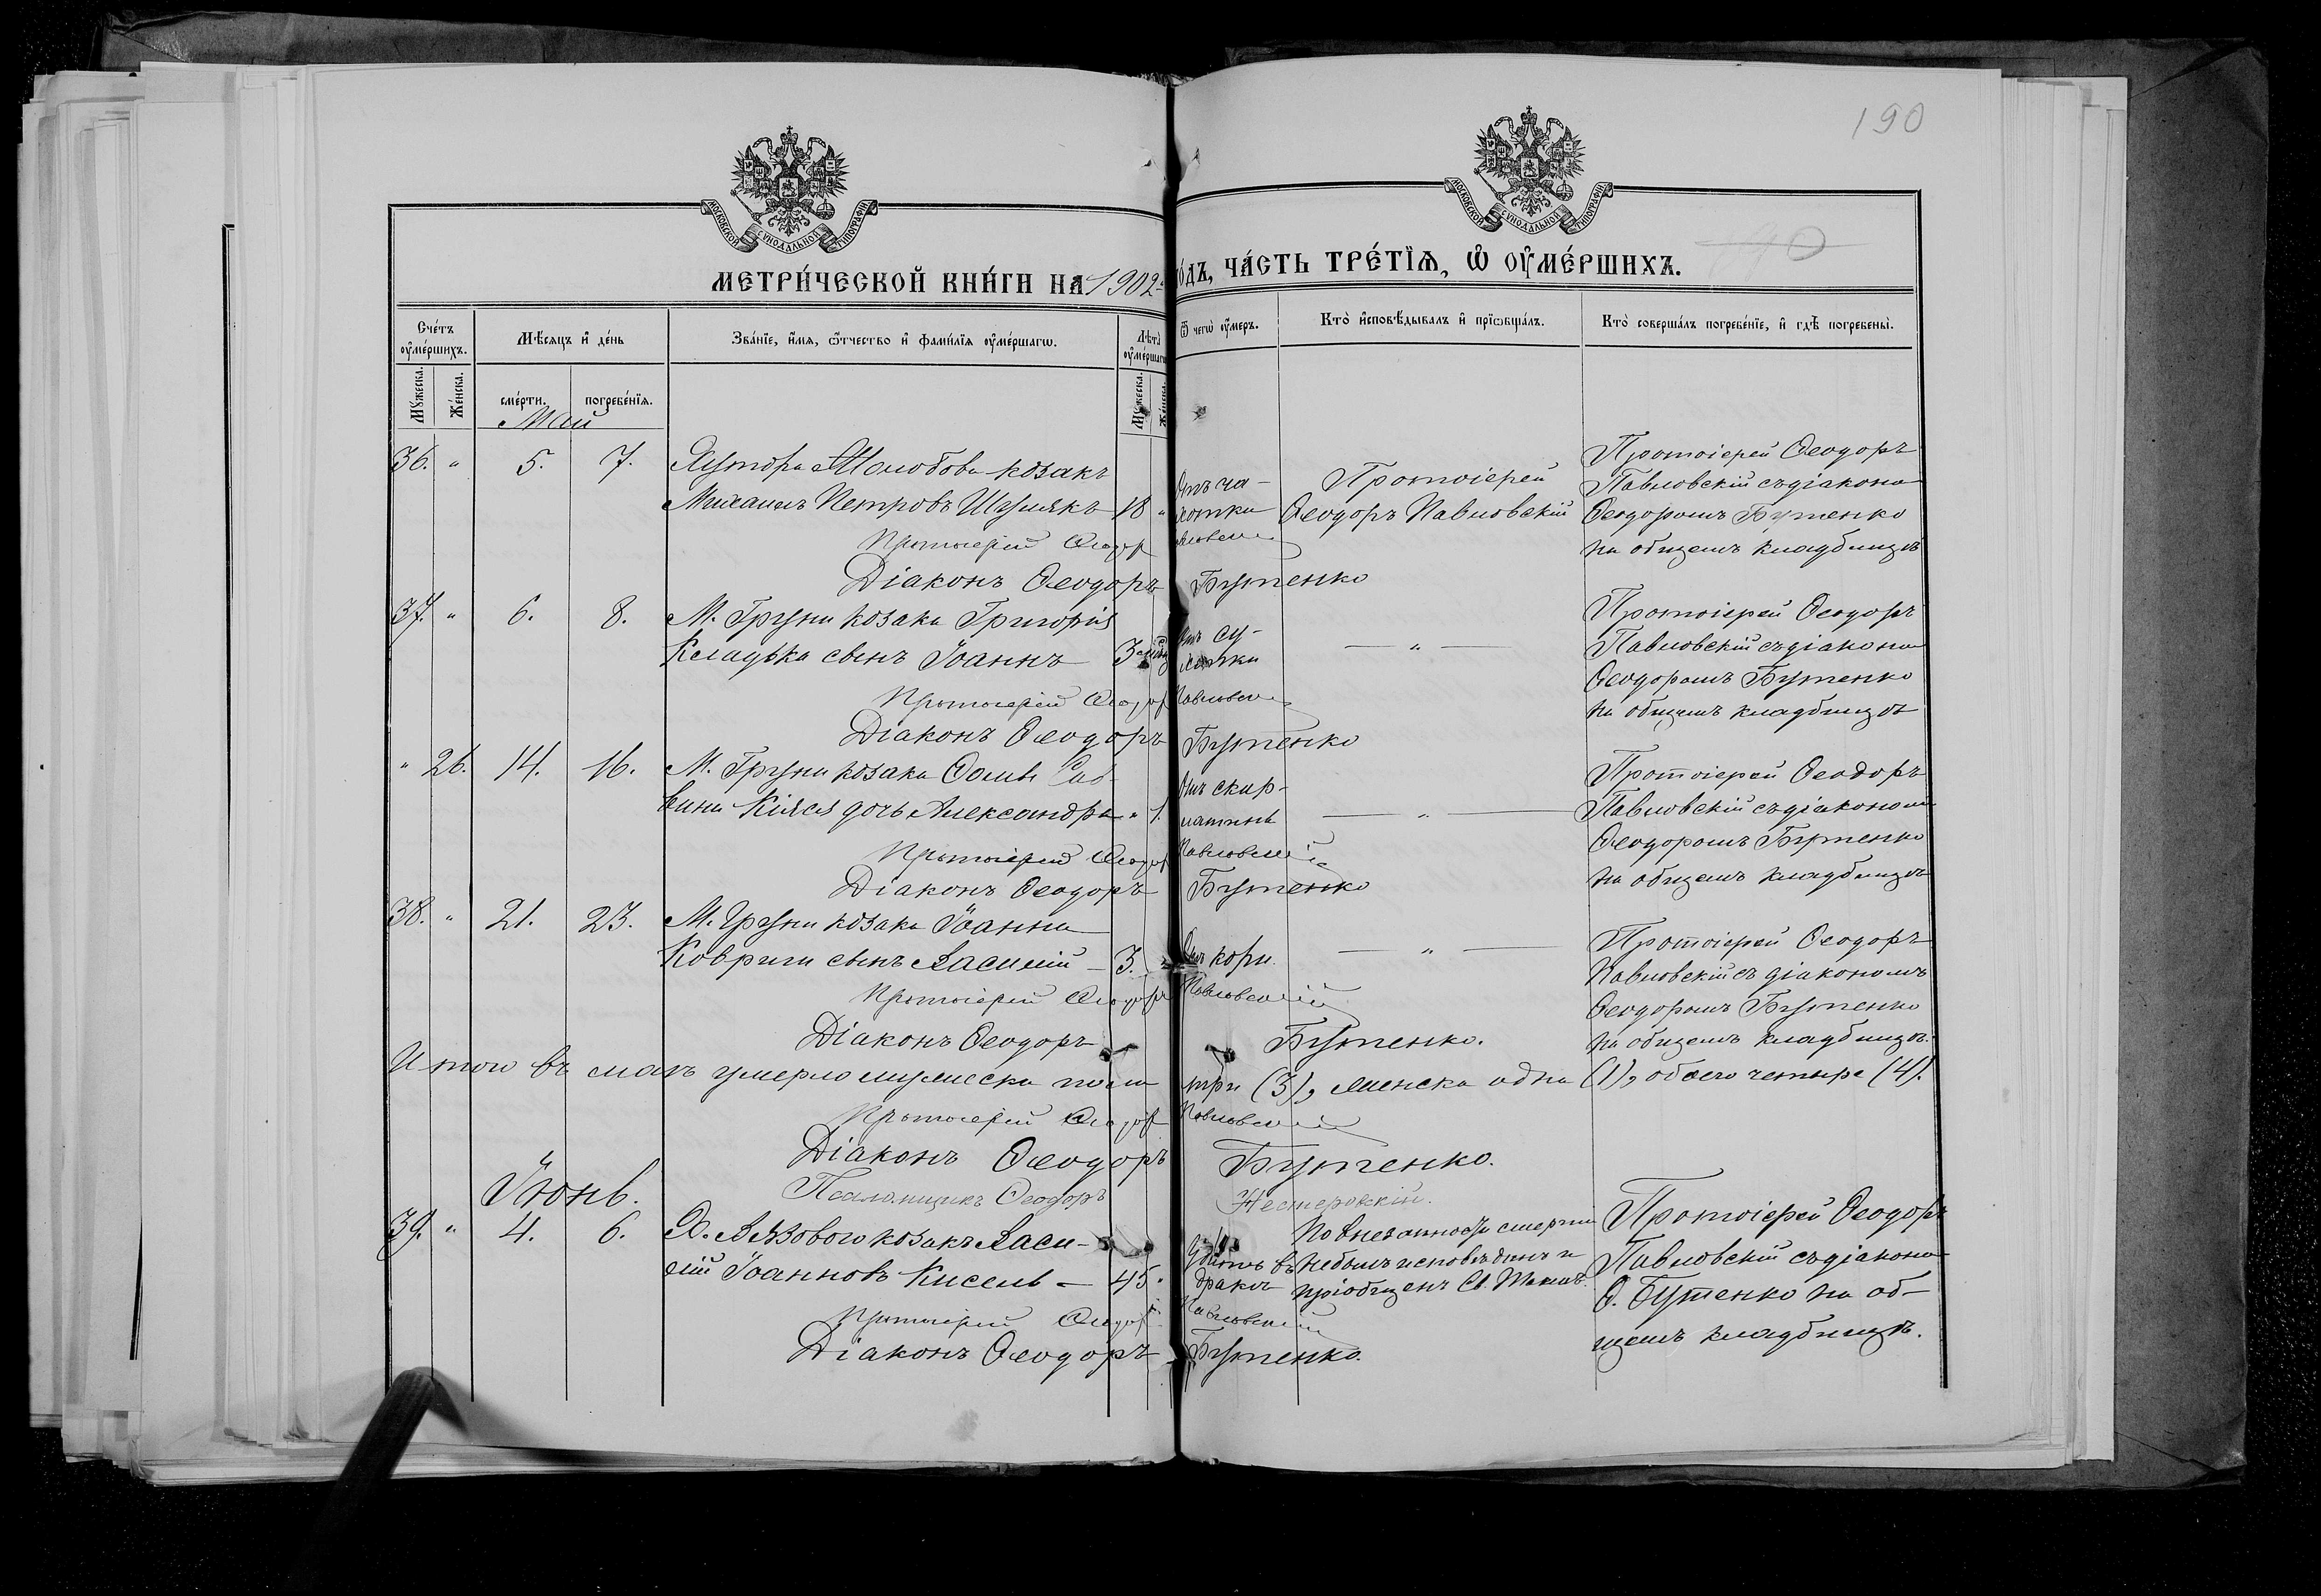 190
МОСКОВСКОЙ СѴНОДАЛЬНОЙ ТИПОГРАФІИ
МОСКОВСКОЙ СѴНОДАЛЬНОЙ ТИПОГРАФІИ
МЕТРИ́ЧЕСКОЙ КНИ́ГИ НА 1902 го́дъ, ЧА́СТЬ ТРЕ́ТІѦ, Ѡ ОУМЕ́РШИХЪ.
Сче́тъ оумéршихъ.
Мѣ́сяцъ и де́нь
Зва́нїе, и́мя, ѿтчество и фами́лїя оумéршагѡ.
Лѣта̀ оумéршагѡ
Ѿ чегѡ̀ оу́меръ.
Кто̀ исповѣ́дывалъ и прїѡбща́лъ.
Кто̀ соверша́лъ погребе́нїе, и гдѣ̀ погребены̀.
Мꙋжеска.
Же́нска.
сме́рти.
погребе́нїя.
Мꙋжеска.
Же́нска.
Май
36. " 5. 7. Хутора козакъ
Михаилъ Петровъ Шуликъ 18 "
Отъ чахотки
Протоіерей
Ѳеодоръ Павловскій
Протоіерей Ѳеодоръ
Павловскій съ діакономъ
Ѳеодоромъ Бутенко
на общемъ кладбищѣ
Протоіерей Ѳеодор Павловскій
Діаконъ Ѳеодоръ Бутенко
37. " 6. 8. М. Груни козака Григорія
сынъ Іоаннъ 3
Отъ су-
хотки
— " —
Протоіерей Ѳеодоръ
Павловскій съ діакономъ
Ѳеодоромъ Бутенко
на общемъ кладбищѣ
Протоіерей Ѳеодор Павловскій
Діаконъ Ѳеодоръ Бутенко
" 26. 14. 16. М. Груни козака Ѳомы Сав-
вина дочь Александра " 1.
Отъ скар-
латины
— " —
Протоіерей Ѳеодоръ
Павловскій съ діакономъ
Ѳеодоромъ Бутенко
на общемъ кладбищѣ
Протоіерей Ѳеодор Павловскій
Діаконъ Ѳеодоръ Бутенко
38. " 21. 23. М. Груни козака Іоанна
Ковриги сынъ Василій — 3. "
Отъ кори.
— " —
Протоіерей Ѳеодоръ
Павловскій съ діакономъ
Ѳеодоромъ Бутенко
на общемъ кладбищѣ.
Протоіерей Ѳеодоръ Павловскій
Діаконъ Ѳеодоръ Бутенко.
Итого въ маѣ умерло мужеска пола три (3), женска одна (1), обоего четыре (4).
Протоіерей Ѳеодор Павловскій
Діаконъ Ѳеодоръ Бутенко.
Псаломщикъ Ѳеодоръ Нестеровскій.
Іюнь.
39. " 4. 6. Х. Вязового козакъ Васи-
лій Іоанновъ Кисель — 45 "
Убитъ въ
дракѣ
По внезапности смерти
не былъ исповѣданъ и
пріобщенъ Св. Таинъ.
Протоіерей Ѳеодоръ
Павловскій съ діакономъ
Ѳ. Бутенко на об-
щемъ кладбищѣ.
Протоіерей Ѳеодор Павловскій
Діаконъ Ѳеодоръ Бутенко.